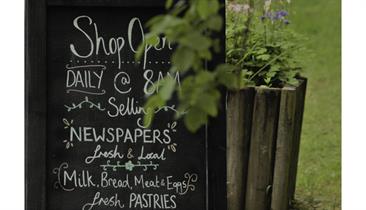 Shop Open
DAILY @ 8AM
Selling
NEWSPAPERS
fresh & Local
(Milk, Bread, Meat & Eggs)
fresh PASTRIES